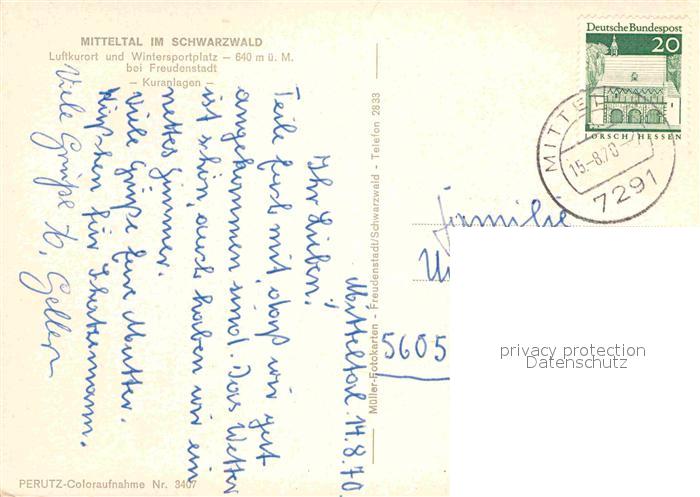 MITTELTAL IM SCHWARZWALD
Luftkurort und Wintersportplatz – 640 m ü. M.
bei Freudenstadt
– Kuranlagen –
Mitteltal 14.8.70.
Ihr Lieben!
Teile Euch mit, daß wir gut
angekommen sind. Das Wetter
ist schön, auch haben wir ein
nettes Zimmer.
Viele Grüße Eure Mutter.
Küßchen für
Viele Grüße H.
PERUTZ-Coloraufnahme Nr. 3407
Müller-Fotokarten - Freudenstadt/Schwarzwald - Telefon 2833
Deutsche Bundespost
20
LORSCH/HESSEN
15.-8.70
7291
Familie
5605
privacy protection
Datenschutz